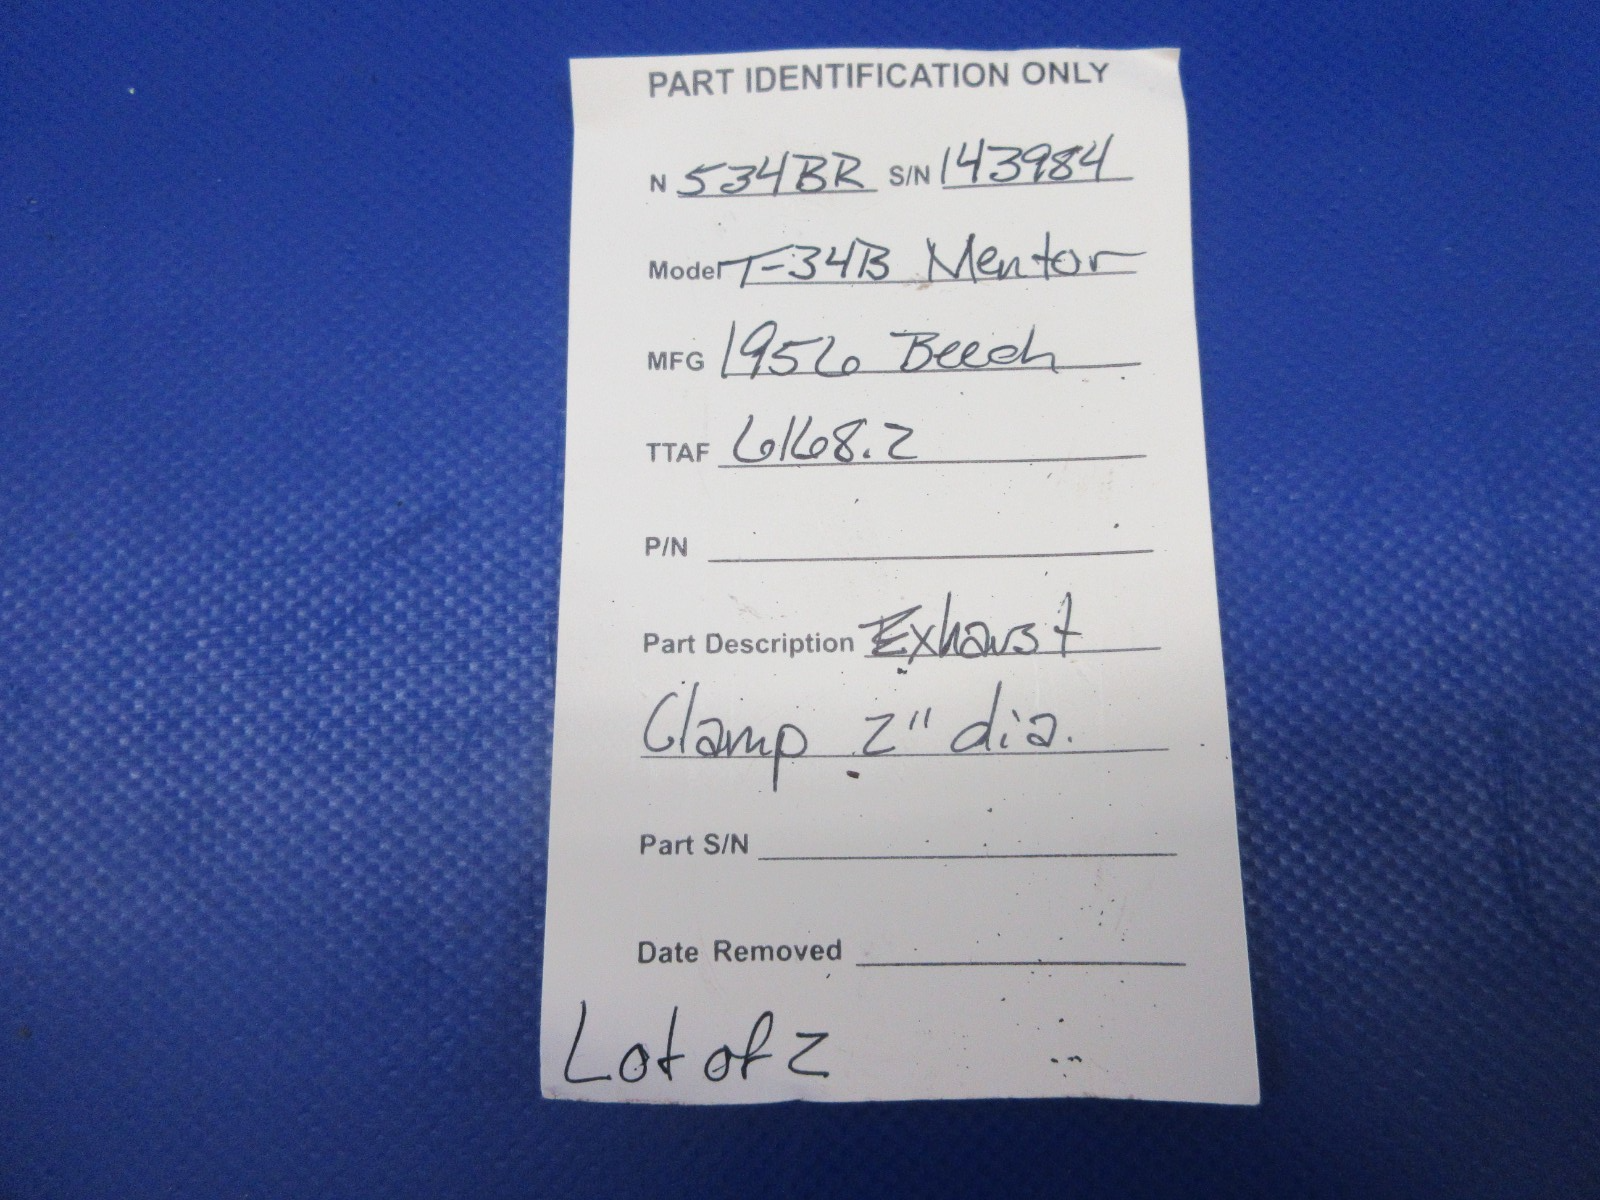 PART IDENTIFICATION ONLY
N 534BR S/N 143984
Model T-34B Mentor
MFG 1956 Beech
TTAF 6168.2
P/N
Part Description Exhaust
Clamp 2" dia.
Part S/N
Date Removed
Lot of 2